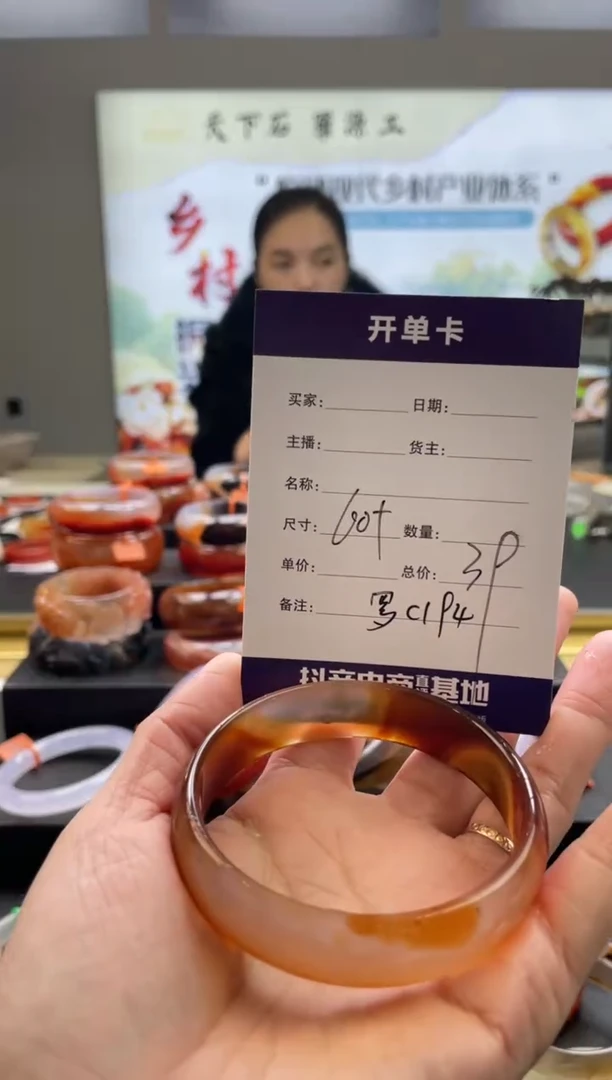 天下石
乡村
现代乡村产业体系”
开单卡
买家: 日期:
主播: 货主:
名称:
尺寸: 60+ 数量:
单价: 总价: 3P
备注: 罗C1P4
抖音电商直播基地